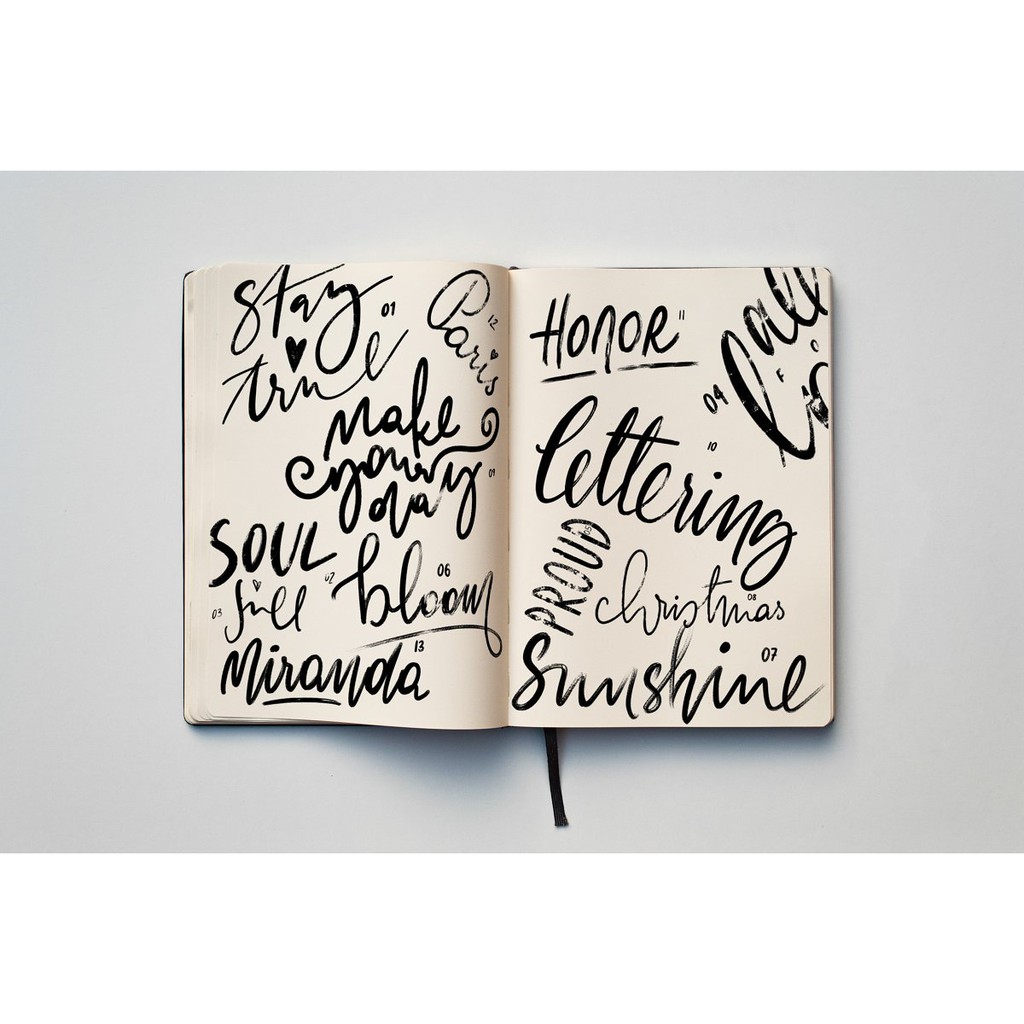 Stay 01
true
Paris 12
Make
your 09
day
SOUL 02
03 full
bloom 06
Miranda 13
HONOR 11
04
lettering 10
PROUD 05
christmas 08
Sunshine 07